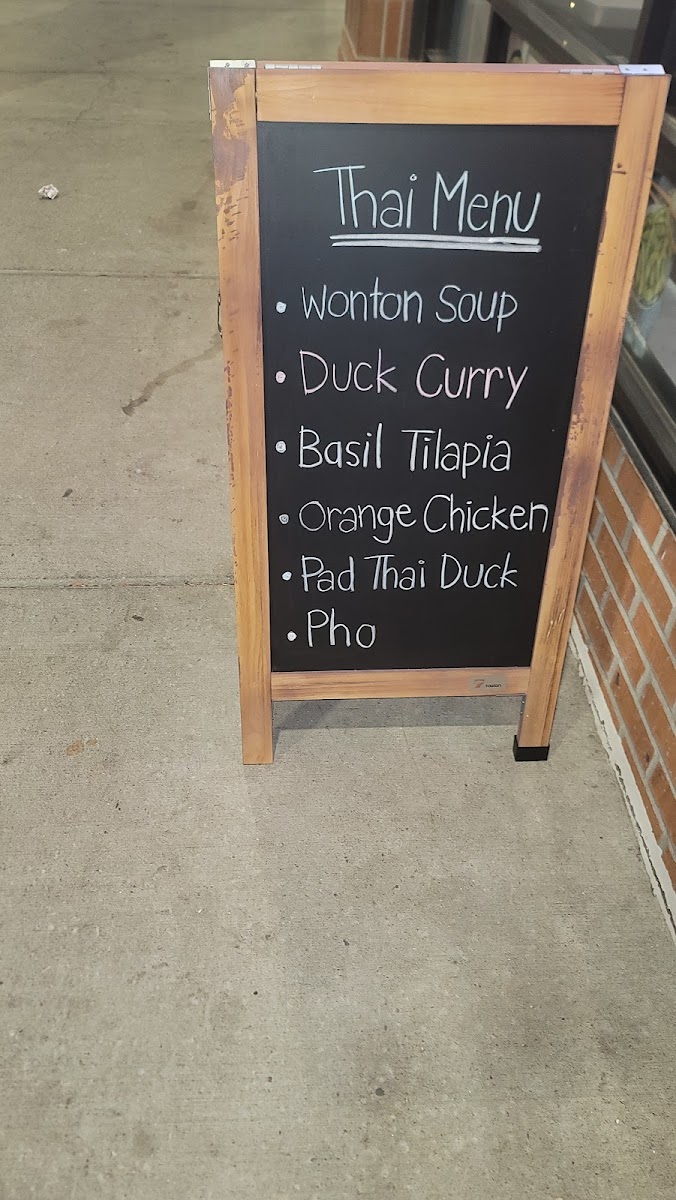 Thai Menu
• Wonton Soup
• Duck Curry
• Basil Tilapia
• Orange Chicken
• Pad Thai Duck
• Pho